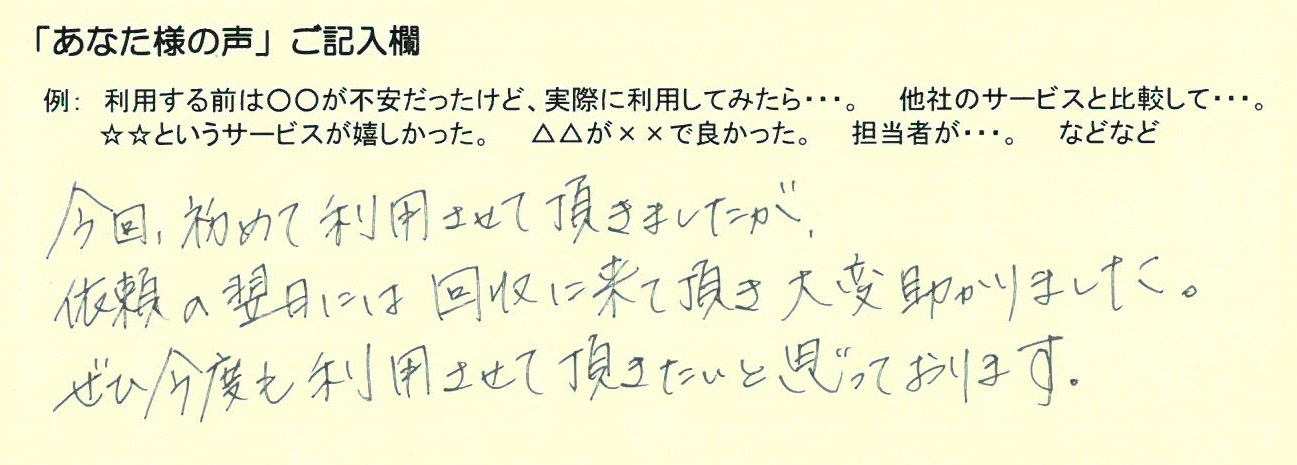 「あなた様の声」ご記入欄
例： 利用する前は〇〇が不安だったけど、実際に利用してみたら･･･。 他社のサービスと比較して･･･。
☆☆というサービスが嬉しかった。 △△が××で良かった。 担当者が･･･。 などなど
今回、初めて利用させて頂きましたが、
依頼の翌日には回収に来て頂き大変助かりました。
ぜひ今度も利用させて頂きたいと思っております。